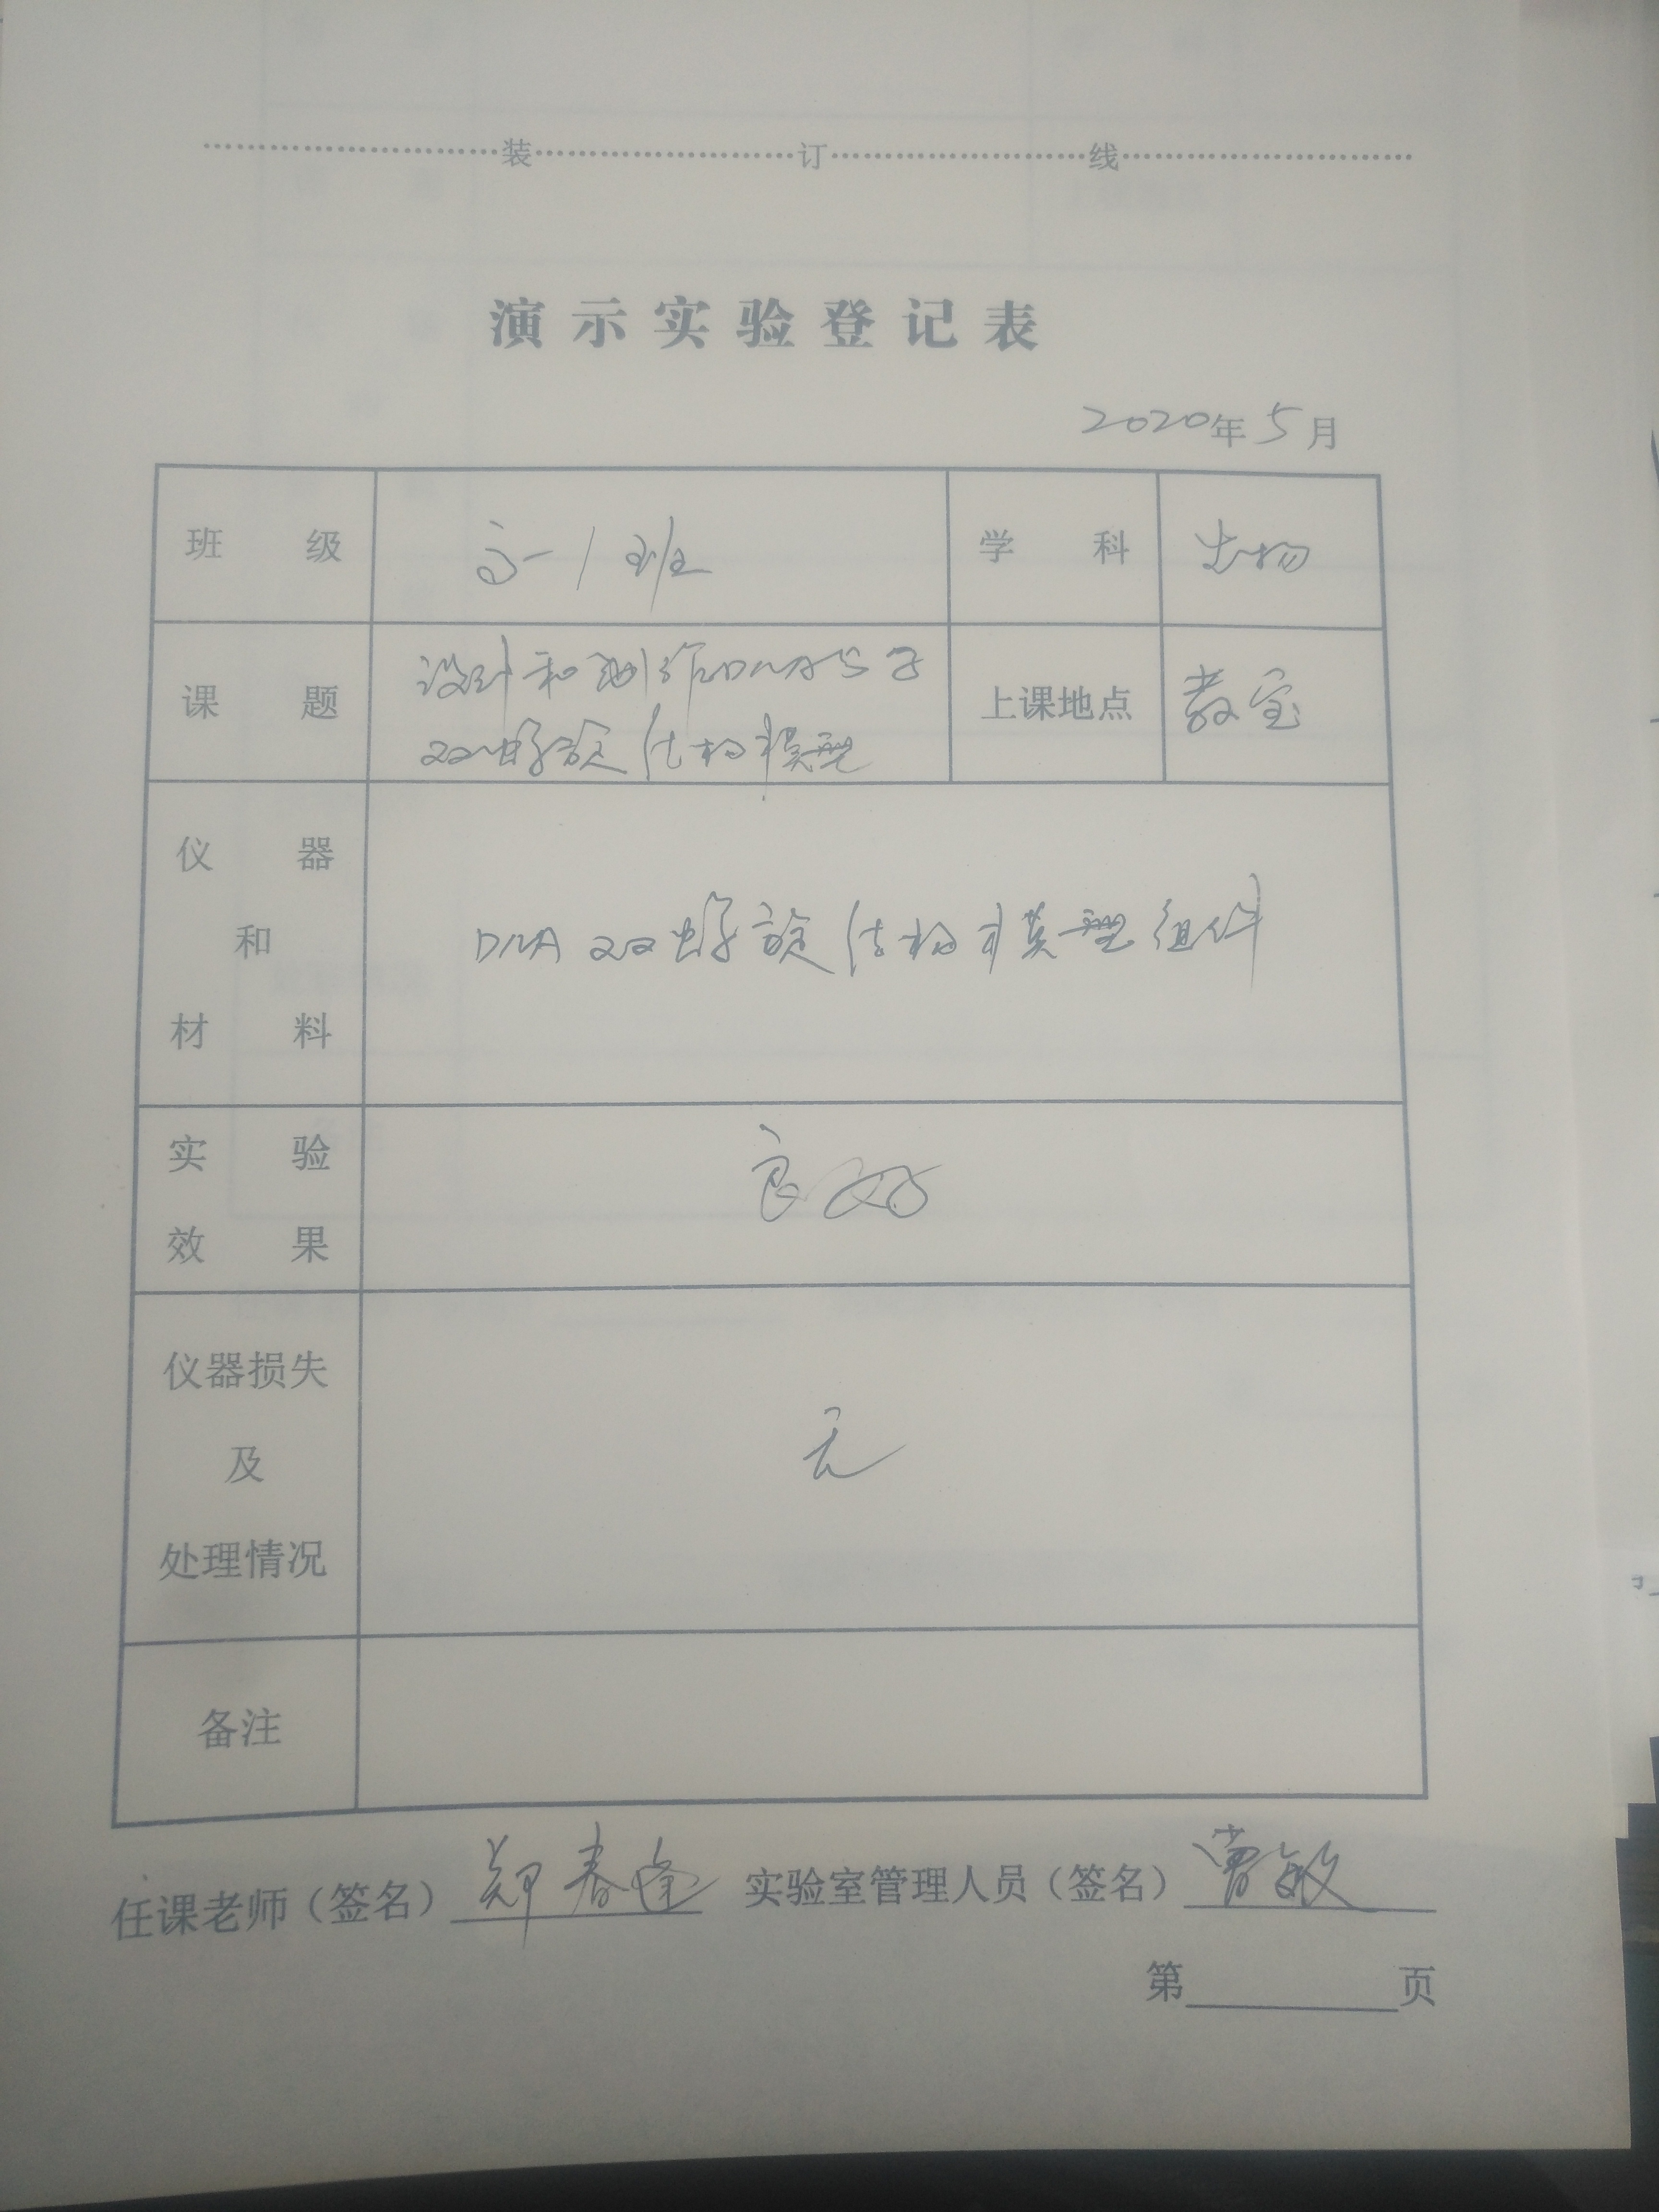 装 订 线
演示实验登记表
2020年5月
班 级 高一1班 学 科 生物
课 题 设计和制作DNA分子 上课地点 教室
双螺旋结构模型
仪 器
和 DNA双螺旋结构模型组件
材 料
实 验 良好
效 果
仪器损失
及 无
处理情况
备注
任课老师（签名） 郑春逢 实验室管理人员（签名） 曹敏
第 页